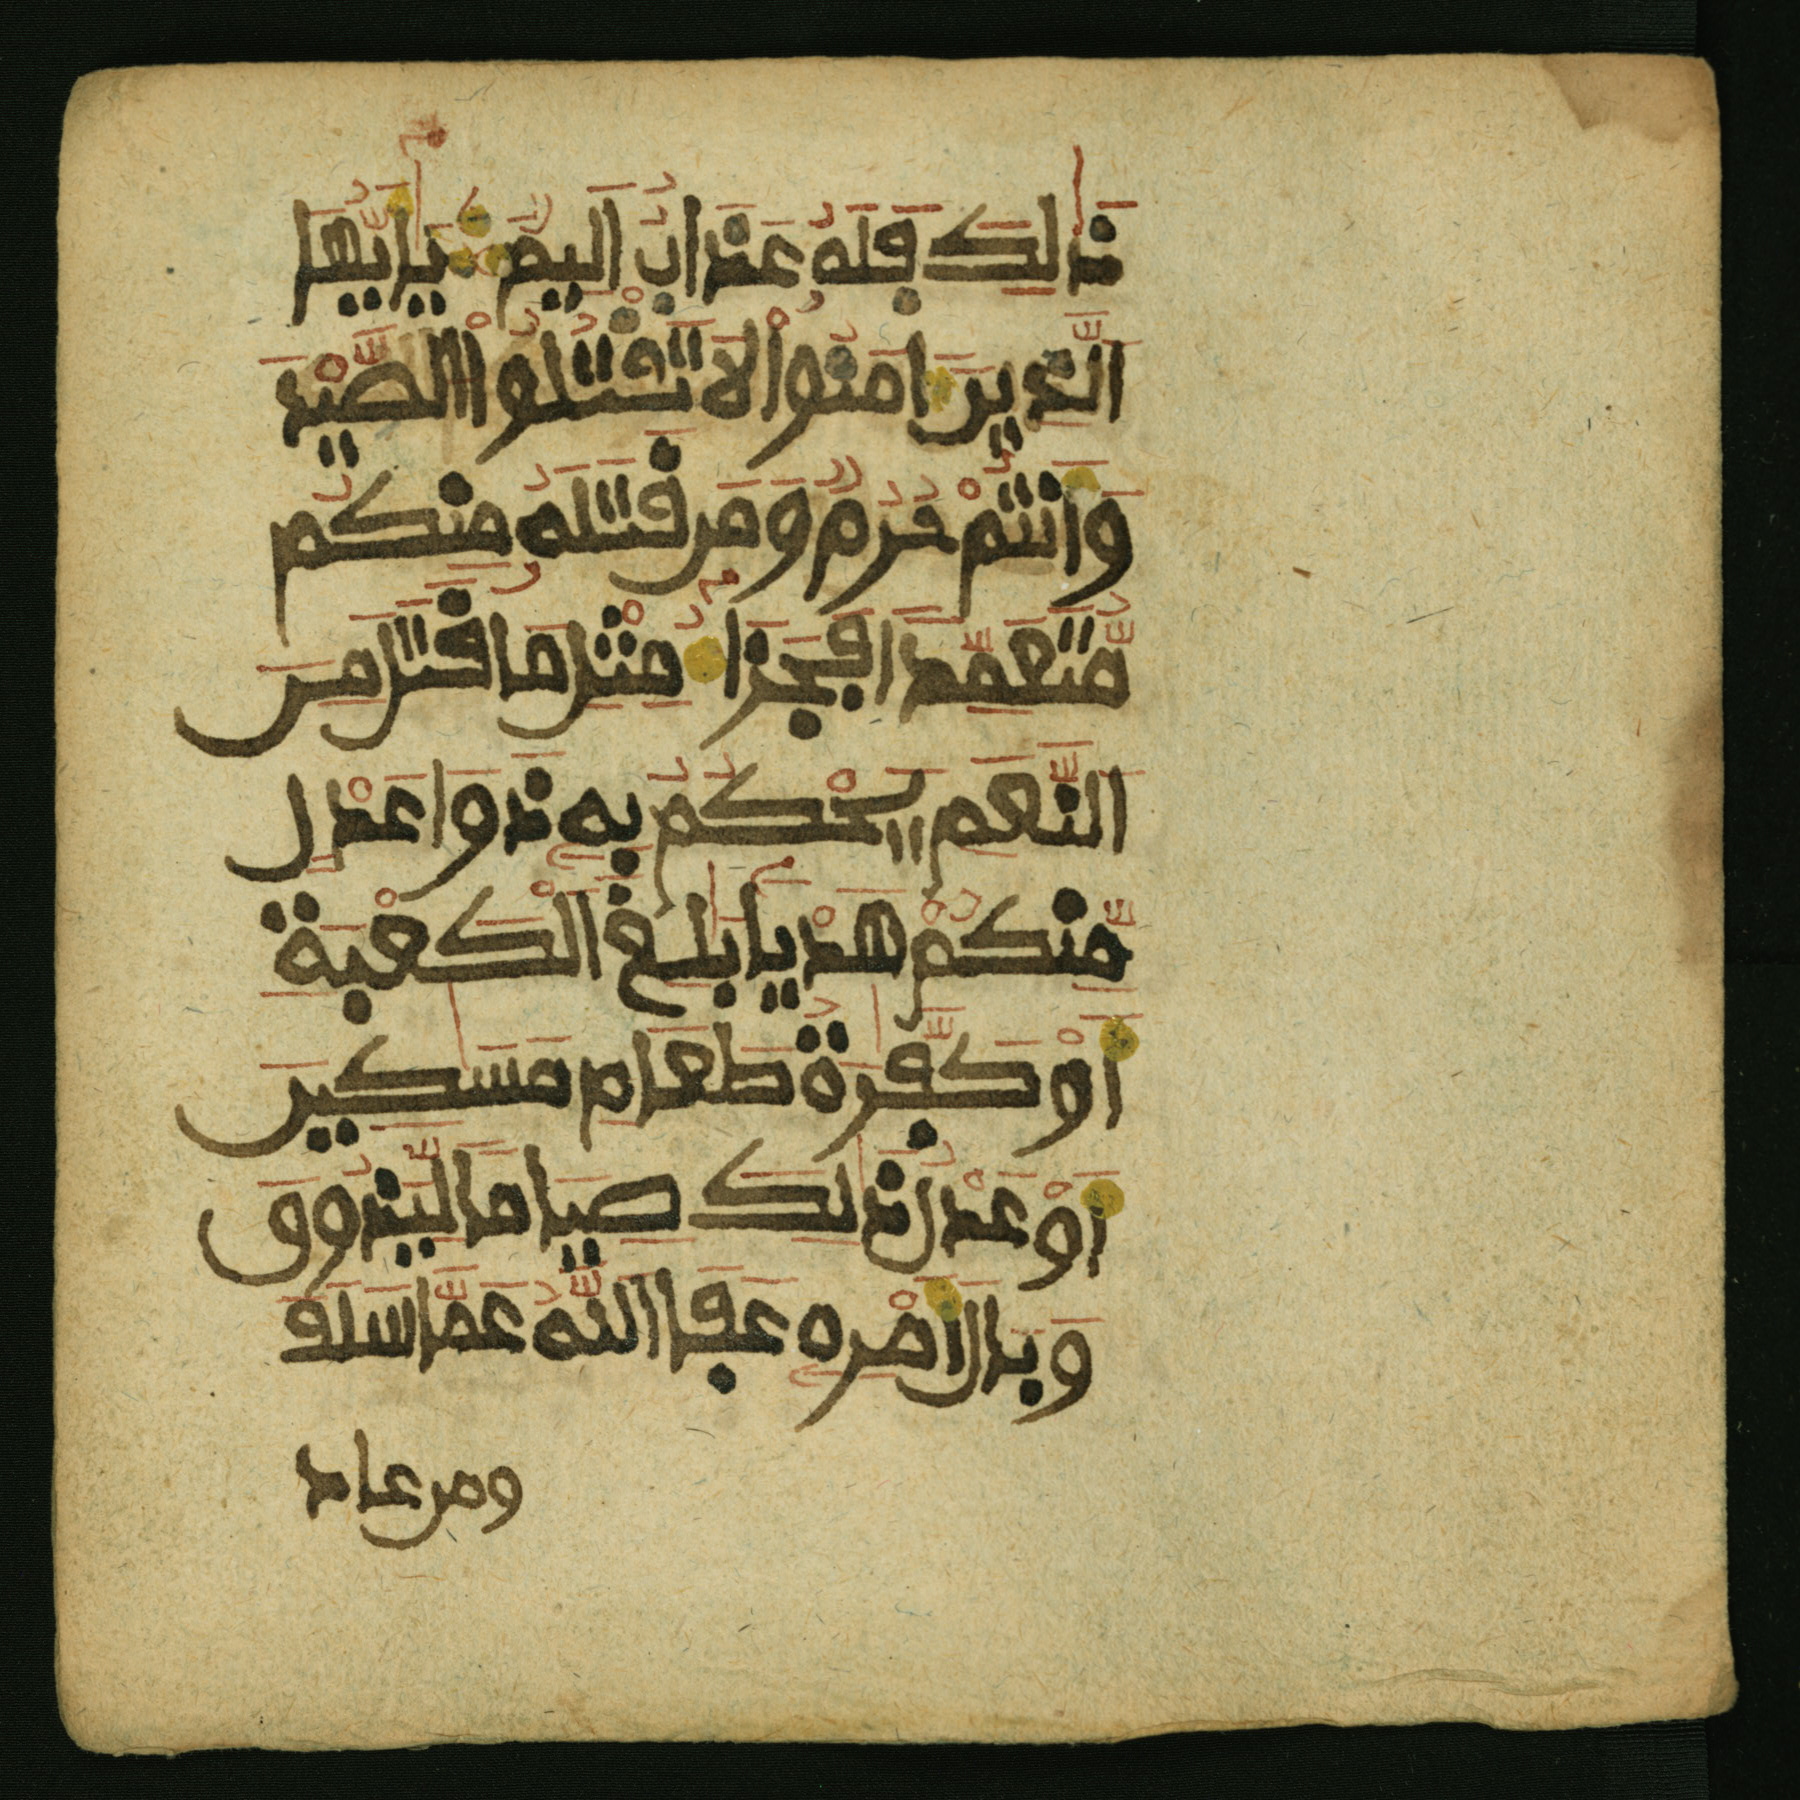 ذَٰلِكَ فَلَهُ عَذَابٌ اَلِيمٌ يَٰأَيُّهَا
اَلَّذِينَ ءَامَنُواْ لَا تَقْتُلُواْ اُلصَّيْدَ
وَأَنتُمْ حُرُمٌ وَمَن قَتَلَهُ مِنكُم
مُّتَعَمِّداً فَجَزَآءُ مِثْلِ مَا قَتَلَ مِنَ
اَلنَّعَمِ يَحْكُمُ بِهِ ذَوَا عَدْلٍ
مِّنكُمْ هَدْياً بَٰلِغَ اَلْكَعْبَةِ
أَوْ كَفَّٰرَةُ طَعَامِ مَسَٰكِينَ
أَوْ عَدْلُ ذَٰلِكَ صِيَاماً لِّيَذُوقَ
وَبَالَ أَمْرِهِ عَفَا اَللَّهُ عَمَّا سَلَفَ
ومن عاد